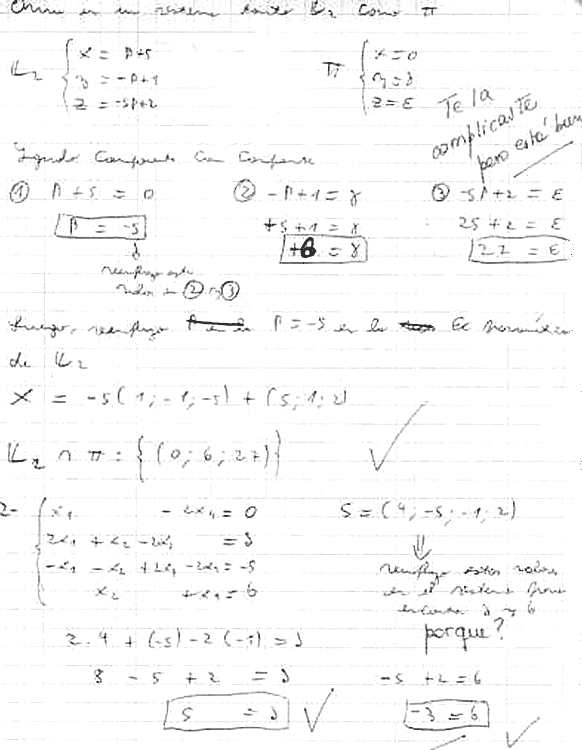 en un sistema tanto L₂ como π
L₂ { x = β+5
y = -β+1
z = -5β+2
π { x = 0
y = γ
z = ε
Te la
complicaste
pero está bien
Igualo Componente Con Componente
① β + 5 = 0
β = -5
reemplazo este
valor en ② y ③
② -β+1 = γ
+5+1 = γ
+6 = γ
③ -5β+2 = ε
25 + 2 = ε
27 = ε
Luego, reemplazo β = -5 en la Ec paramétrica
de L₂
X = -5(1; -1; -5) + (5; 1; 2)
L₂ ∩ π = { (0; 6; 27) }
2- { x₁ - 2x₄ = 0
2x₁ + x₂ - 2x₃ = δ
-x₁ - x₂ + 2x₃ - 2x₄ = -5
x₂ + x₄ = 6
S = (4; -5; -1; 2)
⇓
reemplazo estos valores
en el sistema para
encontrar δ y 6
porque?
2.4 + (-5) - 2(-1) = δ
8 - 5 + 2 = δ
5 = δ
-5 + 2 = 6
-3 = 6